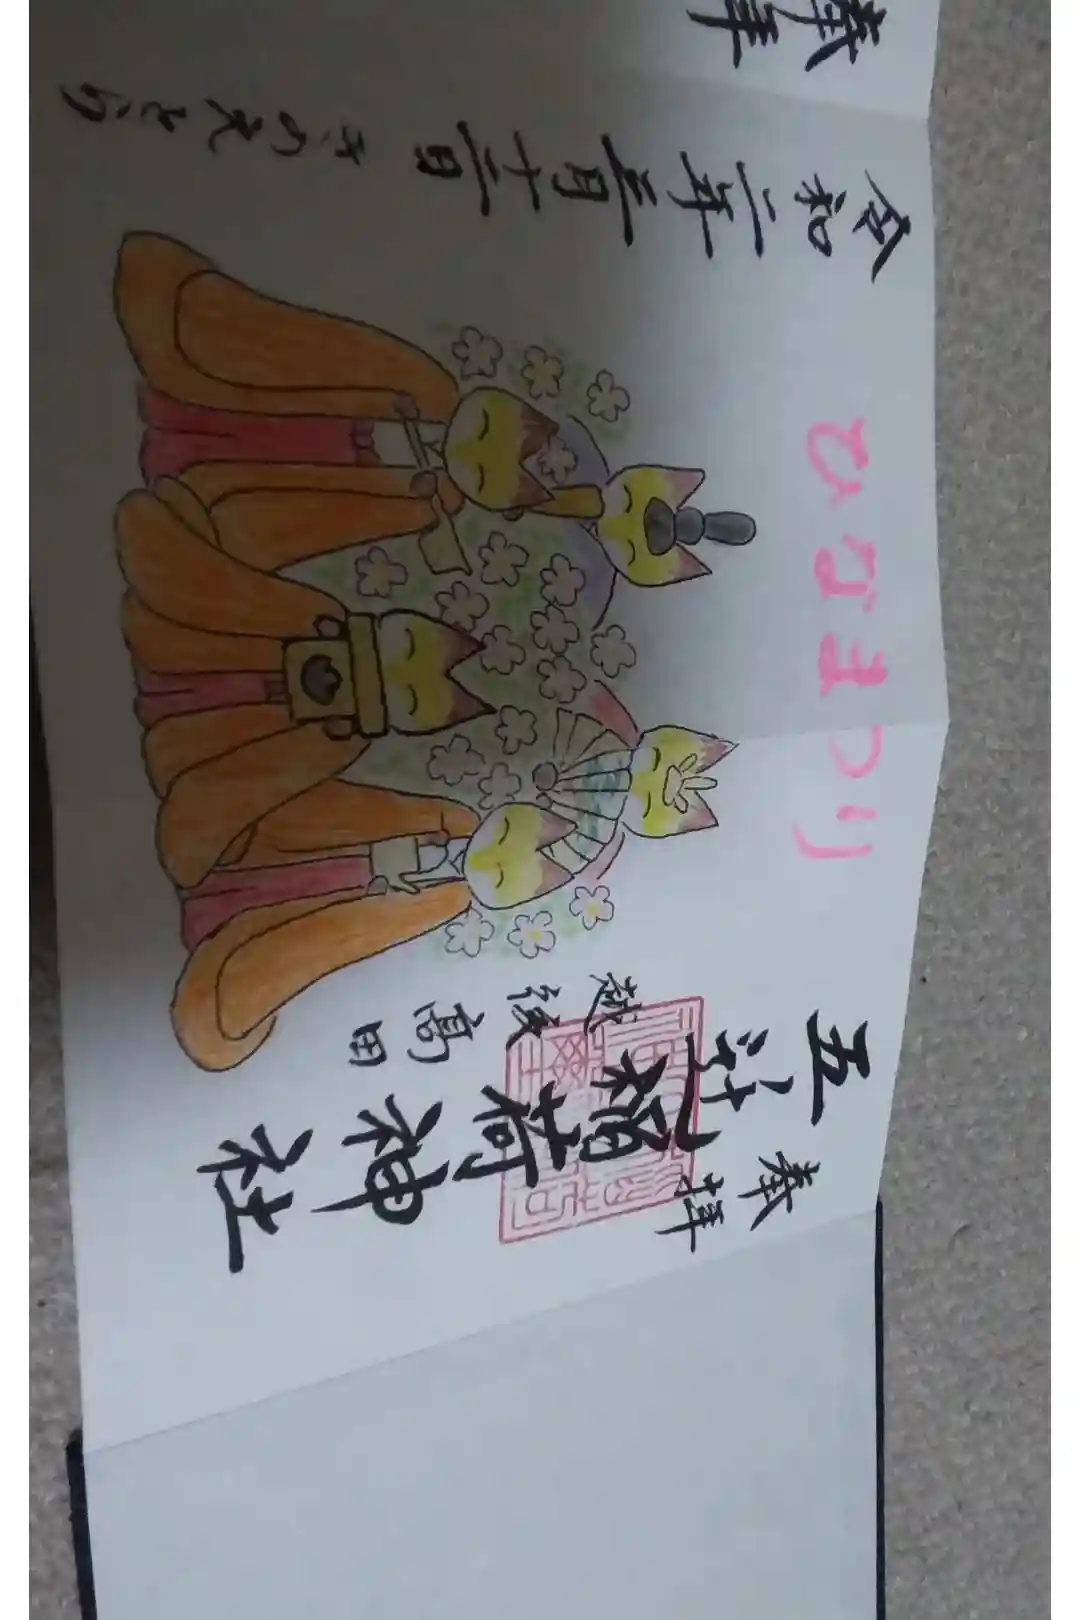 奉拝
五社稲荷神社
越後高田
ひなまつり
令和二年三月十二日 きのえとら
奉拝